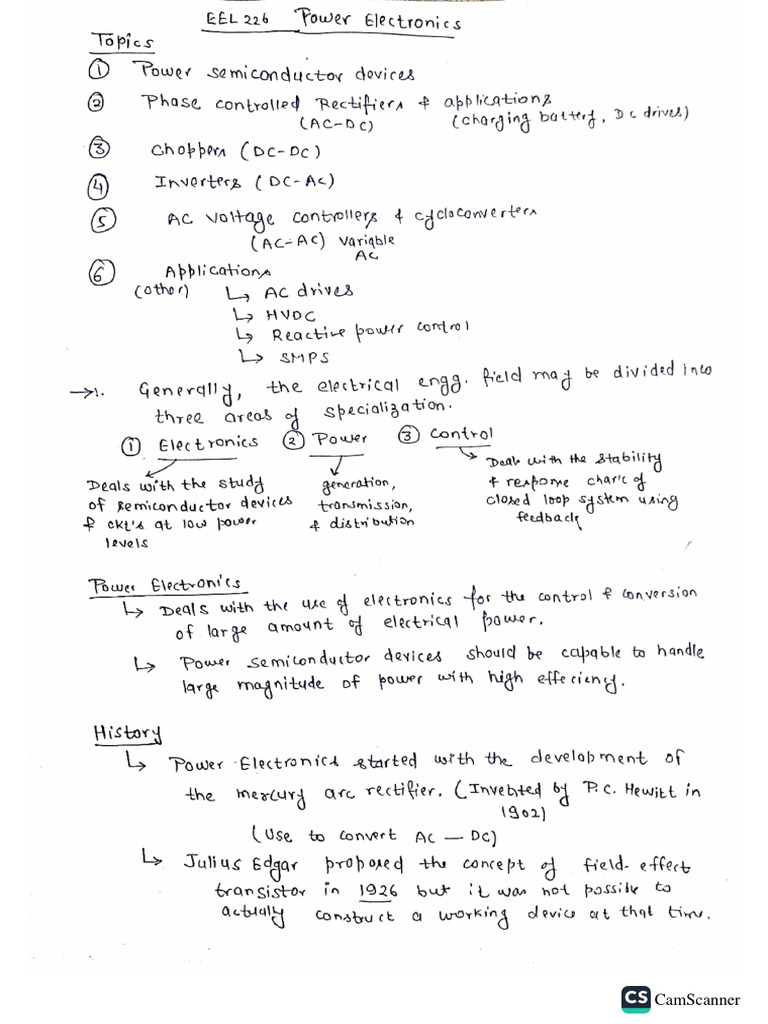 EEL 226 Power Electronics
Topics
① Power semiconductor devices
② Phase controlled Rectifiers & applications
(AC-DC) (charging battery, DC drives)
③ Choppers (DC-DC)
④ Inverters (DC-AC)
⑤ AC voltage controllers & cycloconverters
(AC-AC) variable
AC
⑥ Applications
(other) ↳ AC drives
↳ HVDC
↳ Reactive power control
↳ SMPS
→1. Generally, the electrical engg. field may be divided into
three areas of specialization.
① Electronics ② Power ③ Control
Deals with the study
of semiconductor devices
& ckt's at low power
levels
generation,
transmission,
& distribution
Deals with the stability
& response char'c of
closed loop system using
feedback
Power Electronics
↳ Deals with the use of electronics for the control & conversion
of large amount of electrical power.
↳ Power semiconductor devices should be capable to handle
large magnitude of power with high effeciency.
History
↳ Power Electronics started with the development of
the mercury arc rectifier. (Invebted by P.C. Hewitt in
1902)
(Use to convert AC — DC)
↳ Julius Edgar proposed the concept of field-effect
transistor in 1926 but it was not possible to
actualy construct a working device at that time.
CS CamScanner